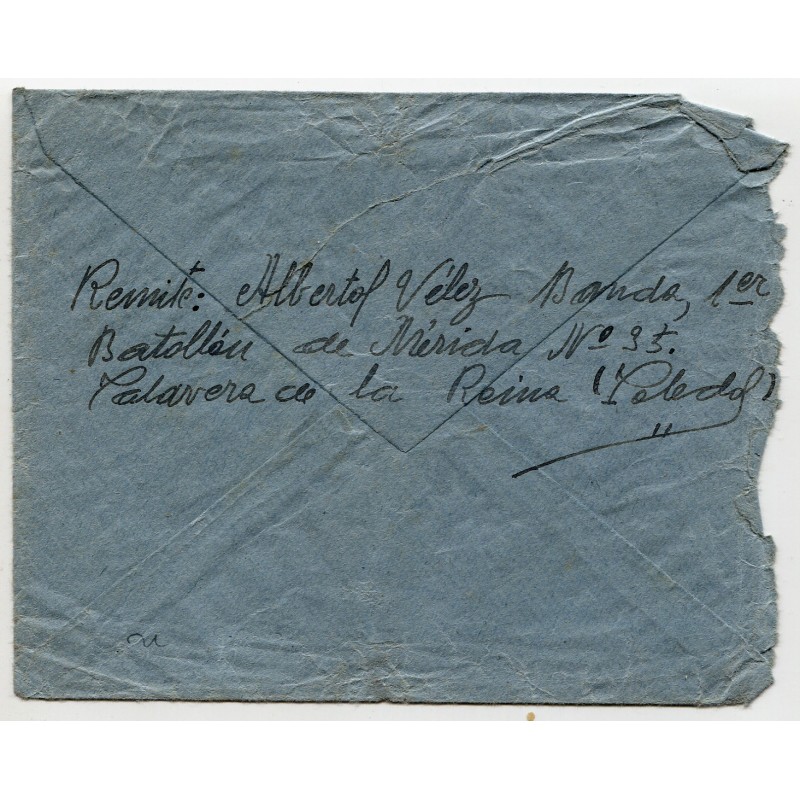 Remite: Alberto Vélez Banda, 1er
Batallón de Mérida Nº 35.
Talavera de la Reina (Toledo)